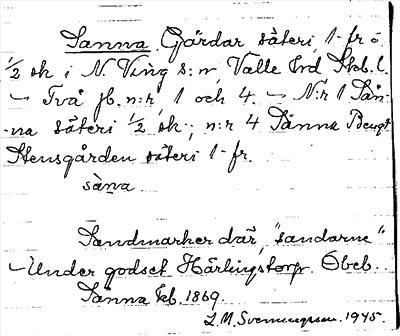 Sanna Gärdar säteri, 1 fr ö.
1/2 sk i N. Ving s:n, Valle hrd Skb. l.
– Två jb. n:r, 1 och 4. – N:r 1 Sån-
-na säteri 1/2 sk; n:r 4 Sånna Bengt
Stensgården säteri 1 fr.
såna
Sandmarker där, "sandarne"
– Under godset Härlingstorp. Obeb.
Sånna Ekb. 1869.
J. M. Svenungsson. 1945.